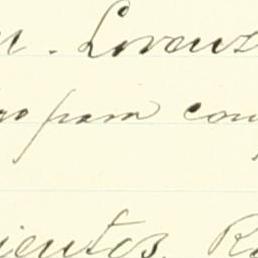 Lorenz
para con
ientos. R